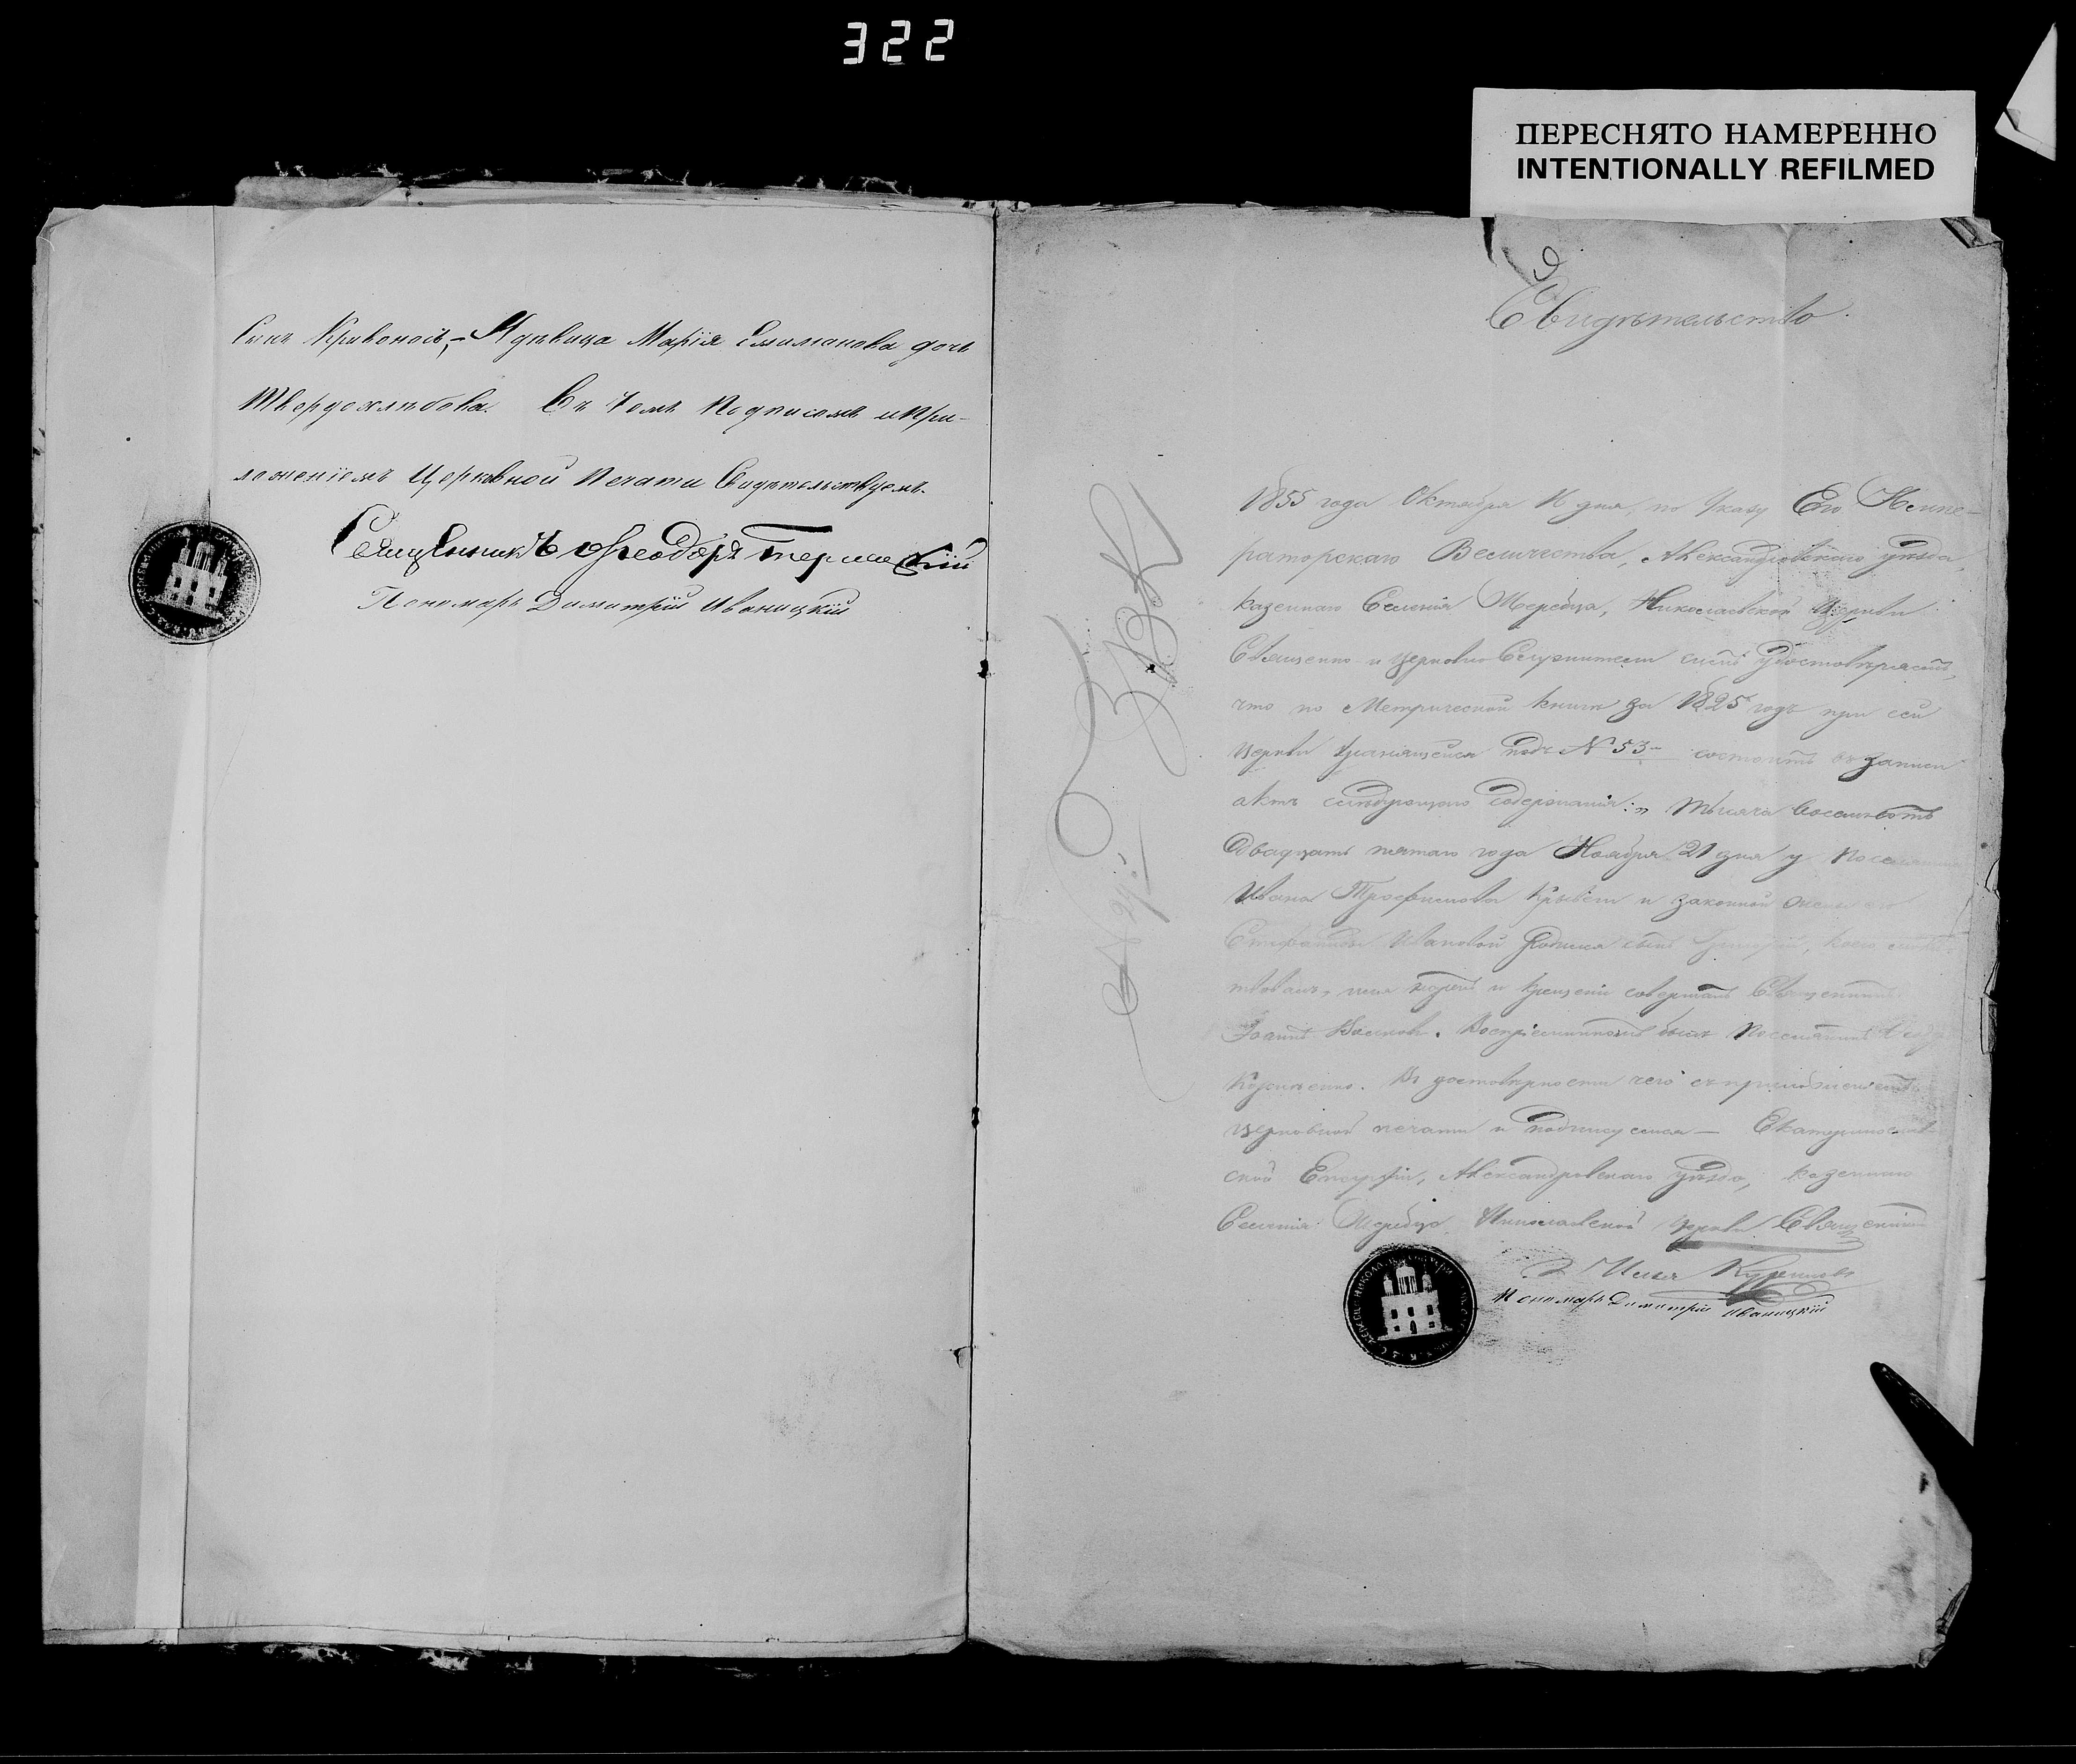 322
ПЕРЕСНЯТО НАМЕРЕННО
INTENTIONALLY REFILMED
сынъ Кривоносъ, - Я дѣвица Марія Емиліанова дочь
Твердохлѣбова. Въ чемъ подписомъ и при-
ложеніемъ Церковной печати Свидѣтельствуемъ.
Священникъ Ѳеодоръ
Пономарь Димитрій Иваницкій
Свидѣтельство
1855 года Октября дня, по Указу Его Импе-
раторскаго Величества, Александровскаго уѣзда,
казеннаго Селенія Жеребца, Николаевской Церкви
Священно и церковно Служители симъ удостовѣряютъ,
что по Метрической книги за 1825 годъ при сей
церкви хранящейся подъ № 53 состоитъ въ записи
актъ слѣдующаго содержанія: „Тысяча восемьсотъ
двадцать пятаго года Ноября 21 дня у поселянина
Ивана Трофимова и законной жены его
Ивановой родился сынъ коего
и крещеніе совершалъ Священникъ
Іоаннъ Воспріемникомъ былъ поселянинъ
Въ достовѣрности чего съ приложеніемъ
церковной печати и подписуемся — Екатеринослав-
ской Епархіи, Александровскаго уѣзда, казеннаго
Селенія Жеребца Николаевской церкви Священникъ
Пономарь Димитрій Иваницкій